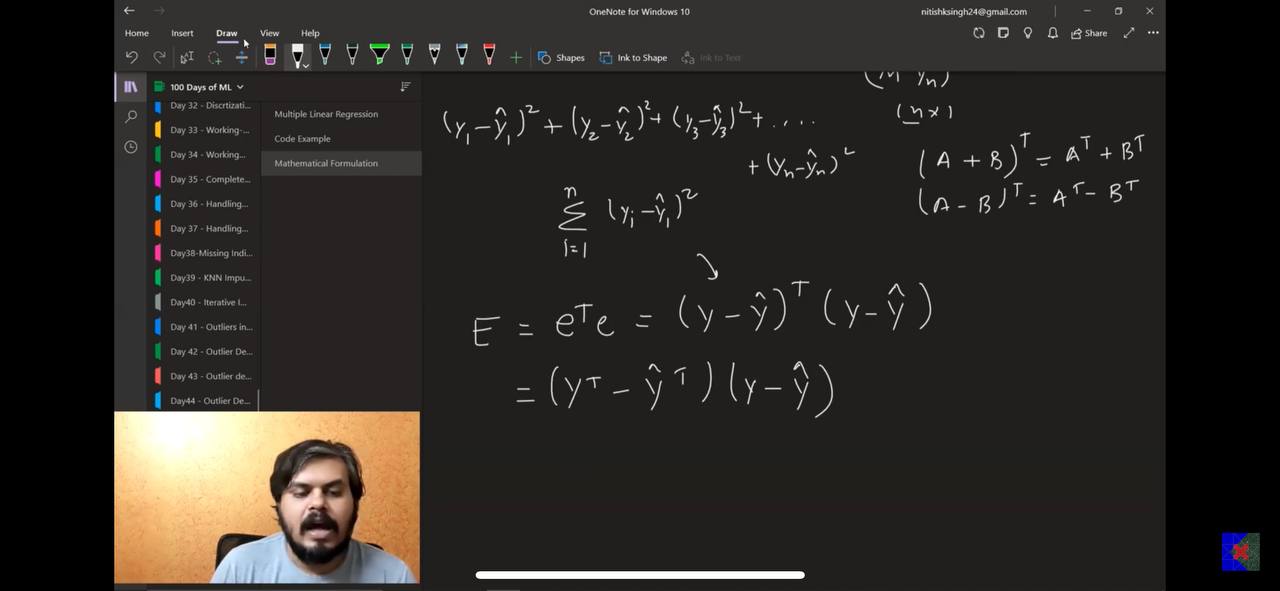 OneNote for Windows 10
nitishksingh24@gmail.com
Home Insert Draw View Help
Share
Shapes Ink to Shape Ink to Text
100 Days of ML
Day 32 - Discrtizati...
Day 33 - Working-...
Day 34 - Working...
Day 35 - Complete...
Day 36 - Handling...
Day 37 - Handling...
Day38-Missing Indi...
Day39 - KNN Impu...
Day40 - Iterative I...
Day 41 - Outliers in...
Day 42 - Outlier De...
Day 43 - Outlier de...
Day44 - Outlier De...
Multiple Linear Regression
Code Example
Mathematical Formulation
(y₁-ŷ₁)² + (y₂-ŷ₂)² + (y₃-ŷ₃)² + ....
+ (yₙ-ŷₙ)²
n
Σ (yᵢ-ŷᵢ)²
i=1
(n×1)
(A + B)ᵀ = Aᵀ + Bᵀ
(A - B)ᵀ = Aᵀ - Bᵀ
E = eᵀe = (y - ŷ)ᵀ (y - ŷ)
= (yᵀ - ŷᵀ) (y - ŷ)